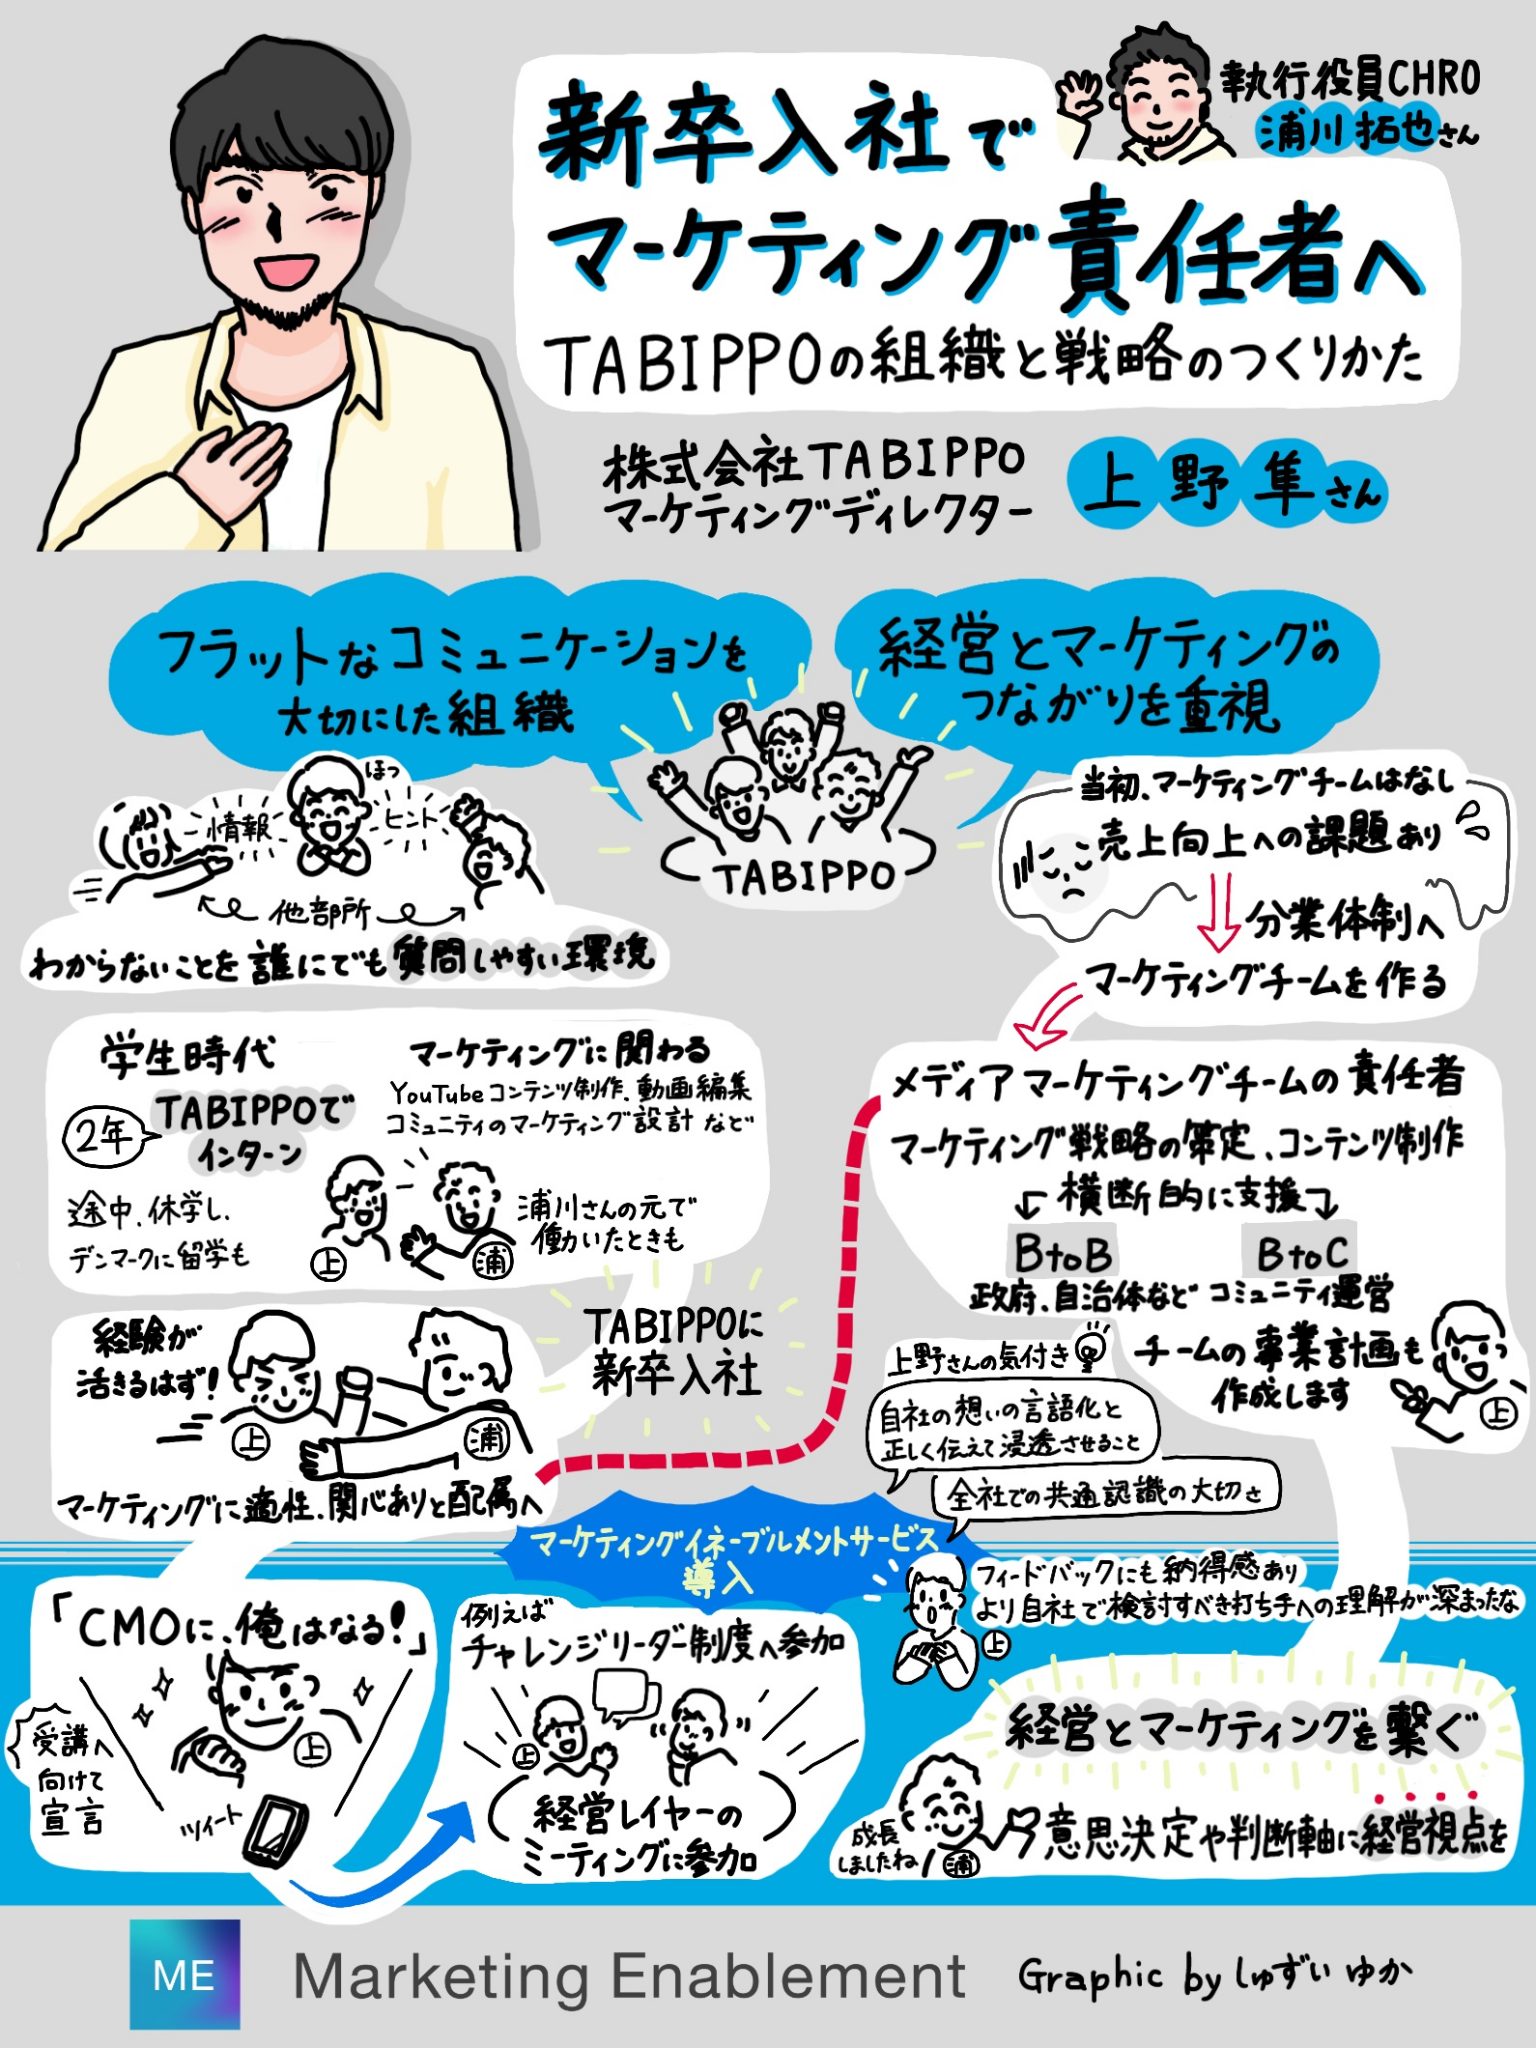 新卒入社で
マーケティング責任者へ
TABIPPOの組織と戦略のつくりかた
執行役員CHRO
浦川拓也さん
株式会社TABIPPO
マーケティングディレクター
上野隼さん
フラットなコミュニケーションを
大切にした組織
経営とマーケティングの
つながりを重視
TABIPPO
ほっ
情報
ヒント
他部所
わからないことを誰にでも質問しやすい環境
当初、マーケティングチームはなし
売上向上への課題あり
分業体制へ
マーケティングチームを作る
学生時代
2年
TABIPPOで
インターン
途中、休学し、
デンマークに留学も
マーケティングに関わる
YouTubeコンテンツ制作、動画編集
コミュニティのマーケティング設計など
上
浦
浦川さんの元で
働いたときも
経験が
活きるはず!
上
浦
マーケティングに適性、関心ありと配属へ
TABIPPOに
新卒入社
メディアマーケティングチームの責任者
マーケティング戦略の策定、コンテンツ制作
横断的に支援
BtoB
政府、自治体など
BtoC
コミュニティ運営
チームの事業計画も
作成します
上
上野さんの気付き
自社の想いの言語化と
正しく伝えて浸透させること
全社での共通認識の大切さ
マーケティングイネーブルメントサービス
導入
「CMOに、俺はなる!」
上
受講へ
向けて
宣言
ツイート
例えば
チャレンジリーダー制度へ参加
上
経営レイヤーの
ミーティングに参加
フィードバックにも納得感あり
より自社で検討すべき打ち手への理解が深まったな
上
経営とマーケティングを繋ぐ
意思決定や判断軸に経営視点を
成長
しましたね
浦
ME
Marketing Enablement
Graphic by しゅずい ゆか